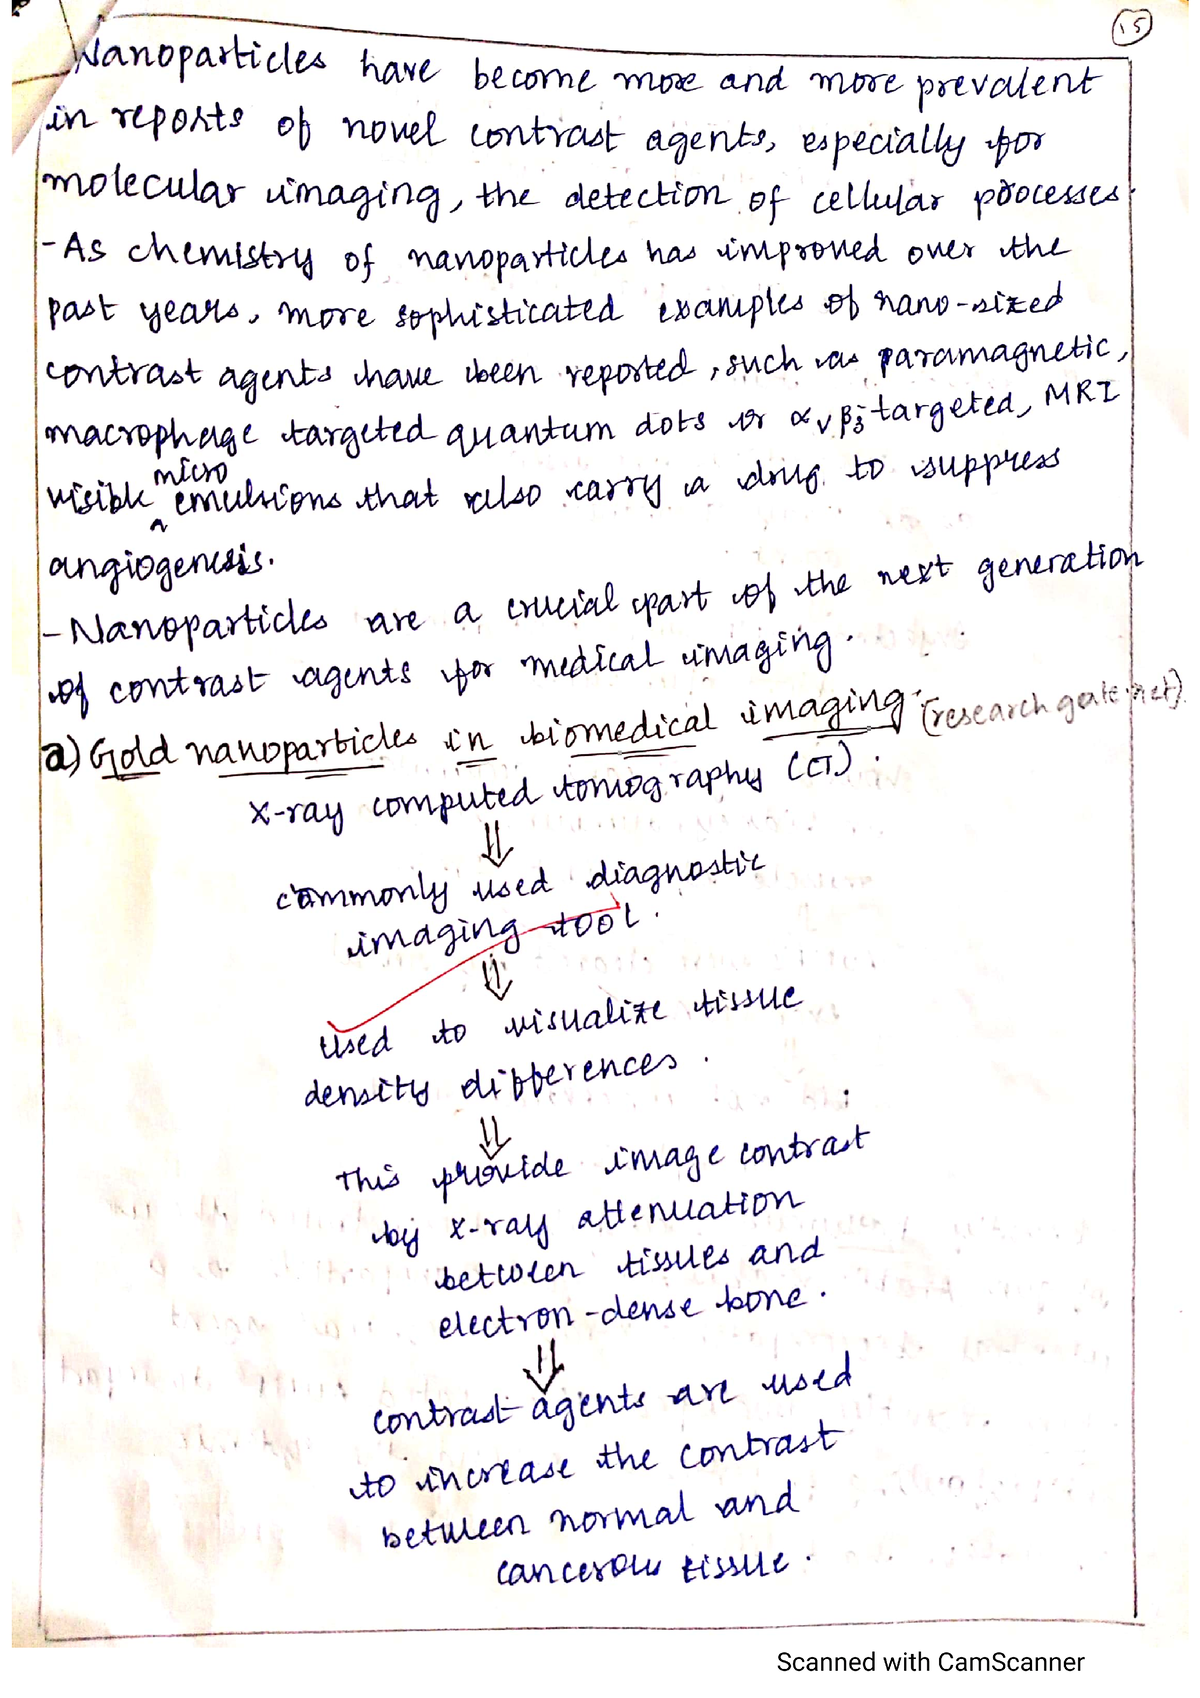 15
Nanoparticles have become more and more prevalent
in reports of novel contrast agents, especially for
molecular imaging, the detection of cellular processes.
- As chemistry of nanoparticles has improved over the
past years, more sophisticated examples of nano-sized
contrast agents have been reported, such as paramagnetic,
macrophage targeted quantum dots or αvβ3-targeted, MRI
micro
visible ^ emulsions that also carry a drug to suppress
angiogenesis.
- Nanoparticles are a crucial part of the next generation
of contrast agents for medical imaging.
a) Gold nanoparticles in biomedical imaging. (researchgate.net)
X-ray computed tomography (CT).
⇓
commonly used diagnostic
imaging tool.
⇓
used to visualize tissue
density differences.
⇓
This provide image contrast
by X-ray attenuation
between tissues and
electron-dense bone.
⇓
contrast agents are used
to increase the contrast
between normal and
cancerous tissue.
Scanned with CamScanner